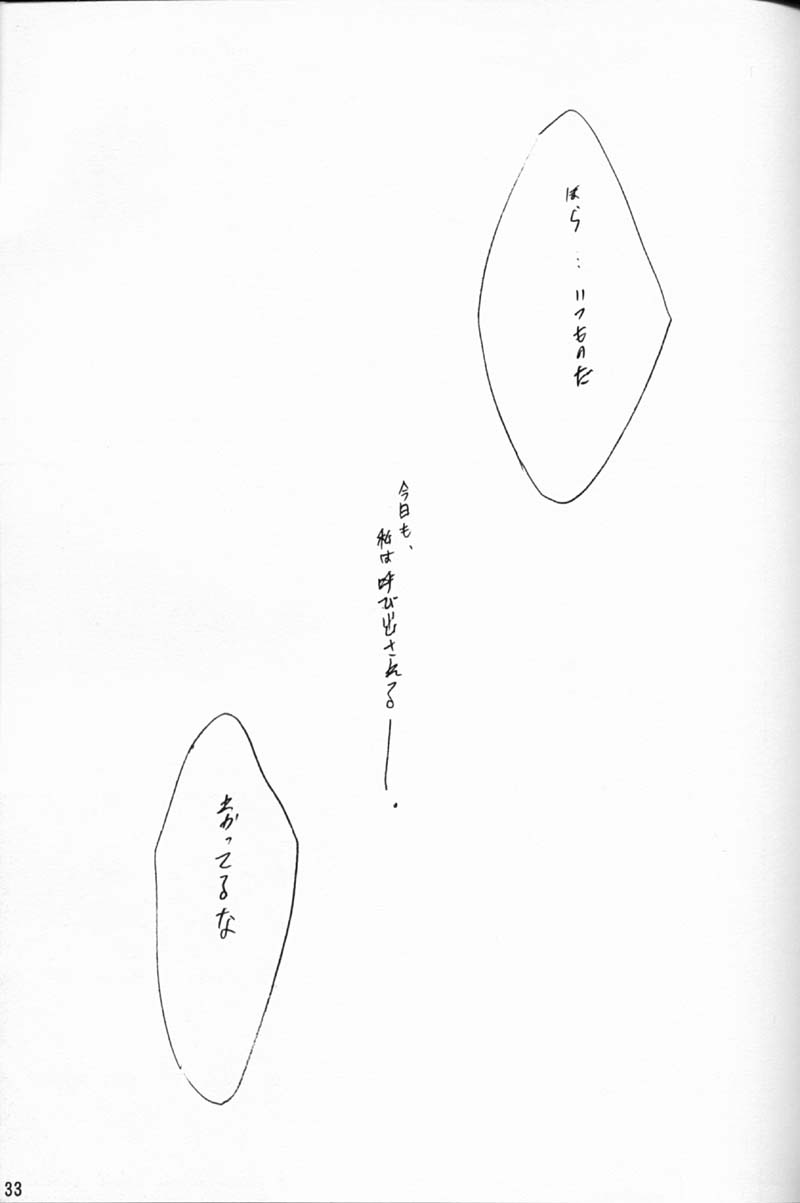 ほら…いつものだ
今日も、
私は呼び出される――.
上がってるな
33